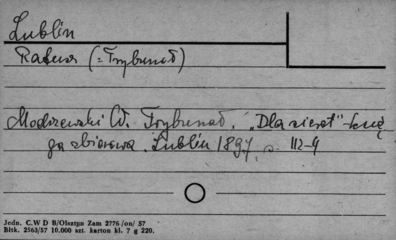 Lublin
Ratusz (=Trybunał)
Modrzewski W. Trybunał. "Dla sierot" – księ
ga zbiorowa. Lublin 1897, s. 112-4
Jedn. C. W D B/Olsztyn Zam 2776 /on/ 57
Bizk. 2563/57 10.000 szt. karton kl. 7 g 220.